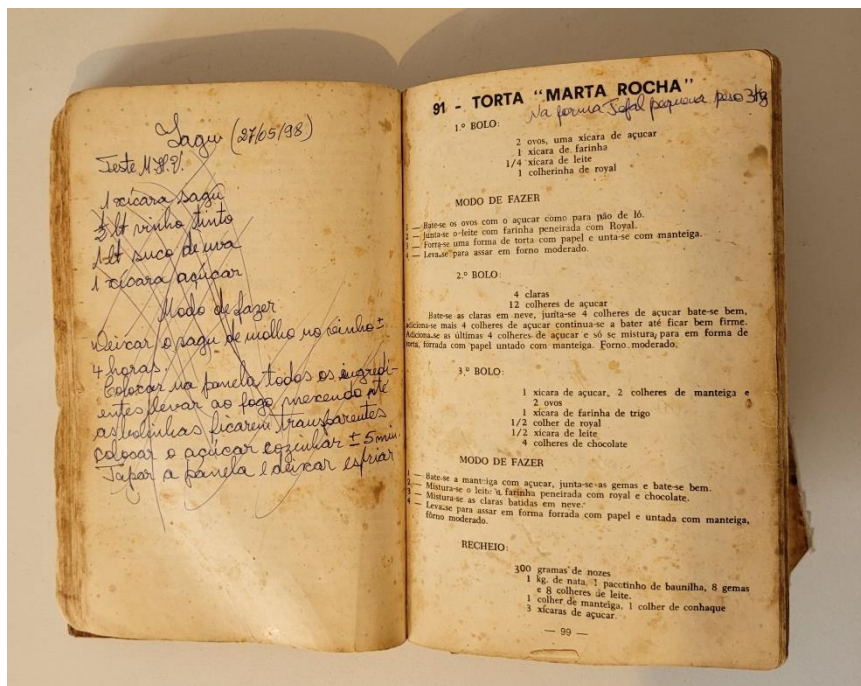 Sagu (27/05/98)
Teste M.H.V.
1 xícara sagu
½ lt vinho tinto
1 lt suco de uva
1 xícara açúcar
Modo de fazer
Deixar o sagu de molho no vinho ±
4 horas.
Colocar na panela todos os ingredi-
entes levar ao fogo mexendo até
as bolinhas ficarem transparentes
colocar o açúcar cozinhar ± 5 min.
Tapar a panela e deixar esfriar
91 - TORTA "MARTA ROCHA"
Na forma Tefal pequena peso 3kg
1.º BOLO:
2 ovos, uma xícara de açucar
1 xícara de farinha
1/4 xícara de leite
1 colherinha de royal
MODO DE FAZER
1 — Bate-se os ovos com o açucar como para pão de ló.
2 — Junta-se o leite com farinha peneirada com Royal.
3 — Forra-se uma forma de torta com papel e unta-se com manteiga.
4 — Leva-se para assar em forno moderado.
2.º BOLO:
4 claras
12 colheres de açucar
Bate-se as claras em neve, junta-se 4 colheres de açucar bate-se bem,
adiciona-se mais 4 colheres de açucar continua-se a bater até ficar bem firme.
Adiciona-se as últimas 4 colheres de açucar e só se mistura, para em forma de
torta, forrada com papel untado com manteiga. Forno moderado.
3.º BOLO:
1 xícara de açucar, 2 colheres de manteiga e
2 ovos
1 xícara de farinha de trigo
1/2 colher de royal
1/2 xícara de leite
4 colheres de chocolate
MODO DE FAZER
1 — Bate-se a manteiga com açucar, junta-se as gemas e bate-se bem.
2 — Mistura-se o leite a farinha peneirada com royal e chocolate.
3 — Mistura-se as claras batidas em neve.
4 — Leva-se para assar em forma forrada com papel e untada com manteiga,
fôrno moderado.
RECHEIO:
300 gramas de nozes
1 kg. de nata, 1 pacotinho de baunilha, 8 gemas
e 8 colheres de leite.
1 colher de manteiga, 1 colher de conhaque
3 xícaras de açucar
— 99 —